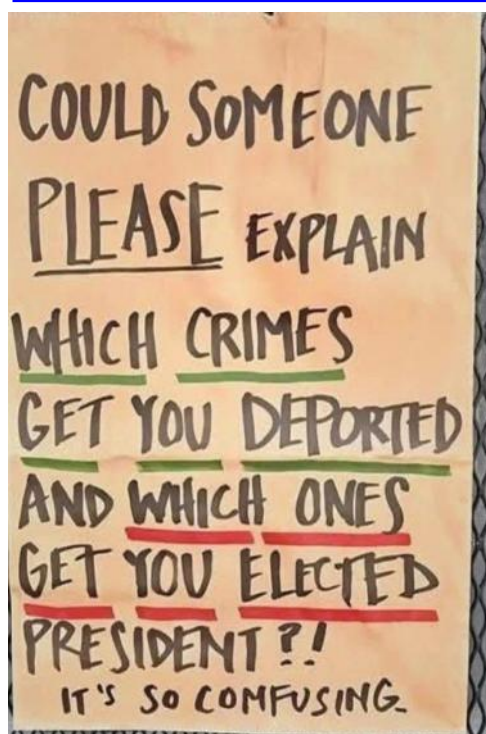 COULD SOMEONE
PLEASE EXPLAIN
WHICH CRIMES
GET YOU DEPORTED
AND WHICH ONES
GET YOU ELECTED
PRESIDENT?!
IT'S SO COMFUSING.